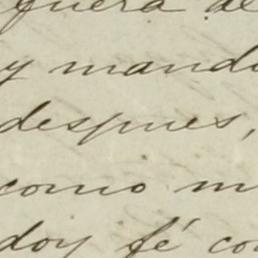 fuera de
y mand
despues,
como m
doy fé con